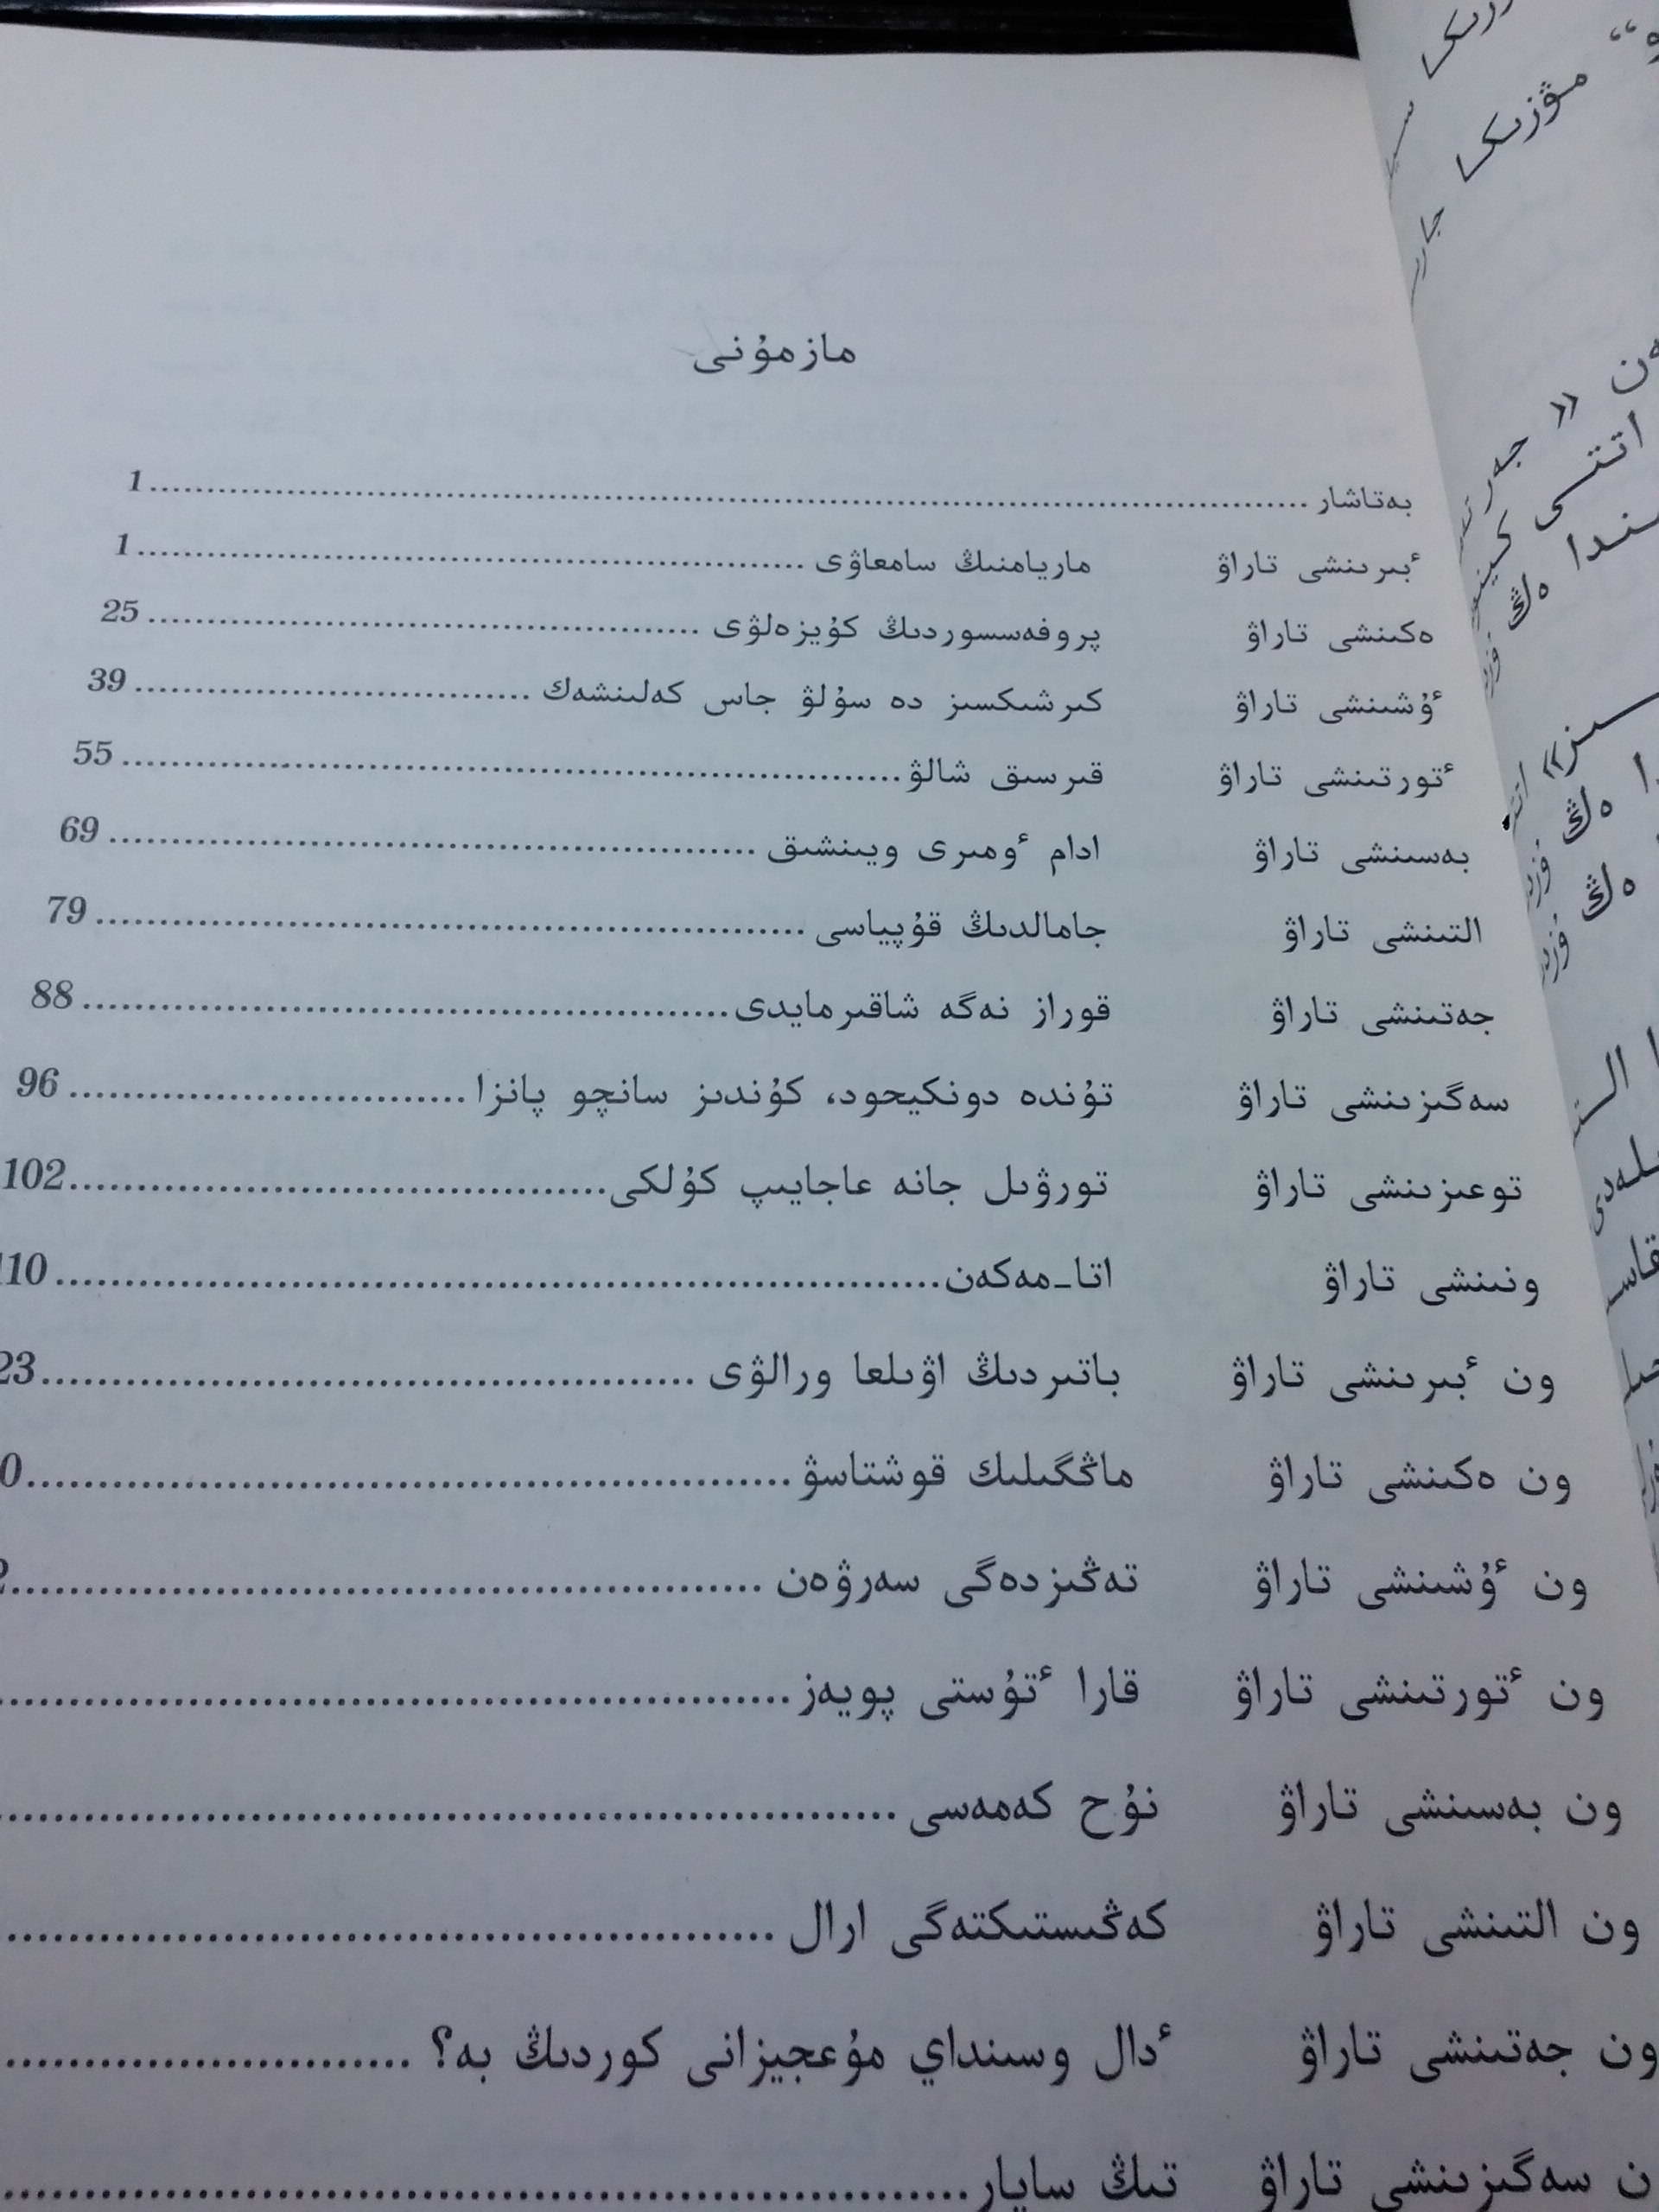 مازمۇنى
بەتاشار 1
ٴبىرىنشى تاراۋ ماريامنىڭ سامعاۋى 1
ەكىنشى تاراۋ پروفەسسوردىڭ كۇيزەلۋى 25
ٴۇشىنشى تاراۋ كىرشىكسىز دە سۇلۋ جاس كەلىنشەك 39
ٴتورتىنشى تاراۋ قىرسىق شالۋ 55
بەسىنشى تاراۋ ادام ٴومىرى ويىنشىق 69
التىنشى تاراۋ جامالدىڭ قۇپياسى 79
جەتىنشى تاراۋ قوراز نەگە شاقىرمايدى 88
سەگىزىنشى تاراۋ تۇندە دونكيحود، كۇندىز سانچو پانزا 96
توعىزىنشى تاراۋ تورۋىل جانە عاجايىپ كۇلكى 102
ونىنشى تاراۋ اتا-مەكەن 110
ون ٴبىرىنشى تاراۋ باتىردىڭ اۋىلعا ورالۋى 23
ون ەكىنشى تاراۋ ماڭگىلىك قوشتاسۋ 0
ون ٴۇشىنشى تاراۋ تەڭىزدەگى سەرۋەن
ون ٴتورتىنشى تاراۋ قارا ٴتۇستى پويەز
ون بەسىنشى تاراۋ نۇح كەمەسى
ون التىنشى تاراۋ كەڭىستىكتەگى ارال
ون جەتىنشى تاراۋ ٴدال وسىنداي مۇعجيزانى كوردىڭ بە؟
ن سەگىزىنشى تاراۋ تىڭ سايار
مۋزىكا